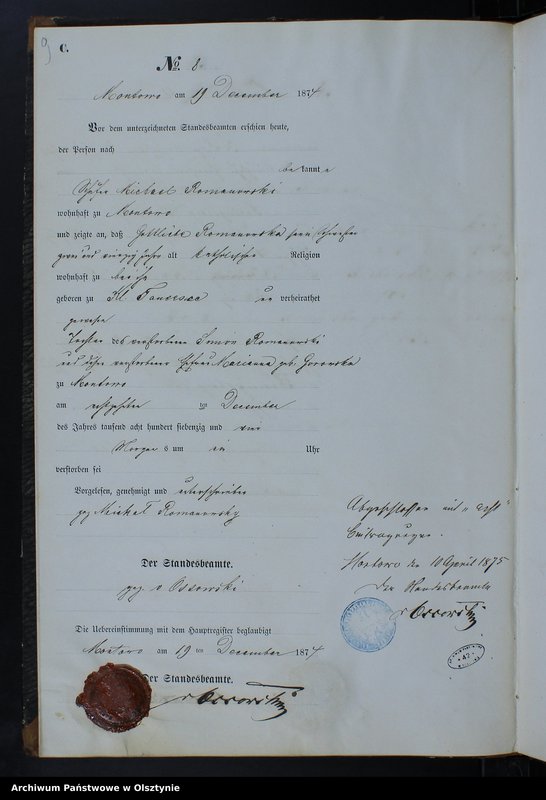 9
C.
№ 8
Montowo am 19 December 1874
Vor dem unterzeichneten Standesbeamten erschien heute,
der Person nach
be kannt e
Michael Romanowski
wohnhaft zu Montowo
und zeigte an, daß Gottliebe Romanowska
alt katholischer Religion
wohnhaft zu bei ihm
geboren zu Kl. un verheirathet
gewesen
Tochter des verstorbenen Simon Romanowski
und dessen verstorbenen Ehefrau Marianna geb.
zu Montowo
am achtzehnten ten December
des Jahres tausend acht hundert siebenzig und vier
Morgen s um ein Uhr
verstorben sei
Vorgelesen, genehmigt und unterschrieben
gez Michael Romanowsky
Der Standesbeamte.
gez. v Ossowski
Die Uebereinstimmung mit dem Hauptregister beglaubigt
Montowo am 19 ten December 1874
Der Standesbeamte.
v Ossowski
Abgeschlossen mit „acht“
Eintragungen.
Montowo den 10 April 1875
Der Standesbeamte
v Ossowski
42
Archiwum Państwowe w Olsztynie